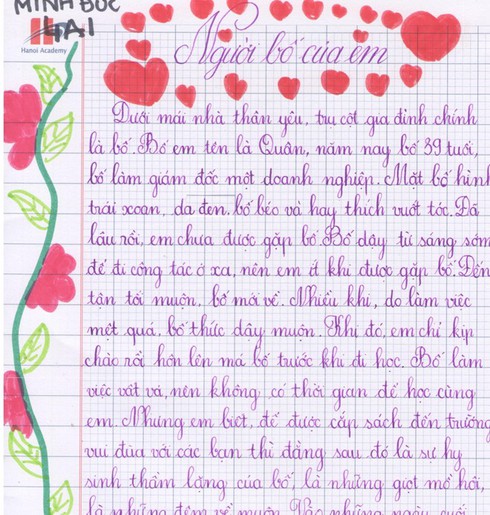 MINH ĐỨC
LAI
Hanoi Academy
Người bố của em
Dưới mái nhà thân yêu, trụ cột gia đình chính
là bố. Bố em tên là Quân, năm nay bố 39 tuổi,
bố làm giám đốc một doanh nghiệp. Mặt bố hình
trái xoan, da đen, bố béo và hay thích vuốt tóc. Đã
lâu rồi, em chưa được gặp bố. Bố dậy từ sáng sớm
để đi công tác ở xa, nên em ít khi được gặp bố. Đến
tận tối muộn, bố mới về. Nhiều khi, do làm việc
mệt quá, bố thức dậy muộn. Khi đó, em chỉ kịp
chào rồi hôn lên má bố trước khi đi học. Bố làm
việc vất vả, nên không có thời gian để học cùng
em. Nhưng em biết, để được cắp sách đến trường
vui đùa với các bạn thì đằng sau đó là sự hy
sinh thầm lặng của bố, là những giọt mồ hôi,
là những đêm về muộn. Vào những ngày cuối